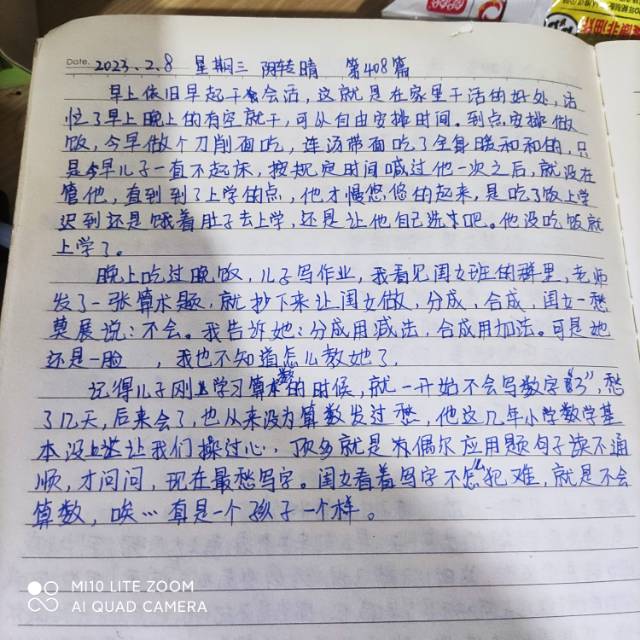 Date. 2023.2.8 星期三 阴转晴 第408篇
早上依旧早起干会会活，这就是在家里干活的好处，活
忙了早上晚上的有空就干，可从自由安排时间。到点安排做
饭，今早做个刀削面吃，连汤带面吃了全身暖和和的，只
是今早儿子一直不起床，按规定时间喊过他一次之后，就没在
管他，直到到了上学的点，他才慢悠悠的起来，是吃了饭上学
迟到还是饿着肚子去上学，还是让他自己选择吧。他没吃饭就
上学了。
晚上吃过晚饭，儿子写作业，我看见闺女班的群里，老师
发了一张算术题，就抄下来让闺女做，分成，合成，闺女一愁
莫展说：不会。我告诉她：分成用减法，合成用加法。可是她
还是一脸 ，我也不知道怎么教她了，
记得儿子刚上学习算数的时候，就一开始不会写数字"3"，愁
了几天，后来会了，也从来没为算数发过愁，他这几年小学数学基
本没上述让我们操过心，顶多就是有偶尔应用题句子读不通
顺，才问问，现在最愁写字。闺女看着写字不怎么犯难，就是不会
算数，唉…真是一个孩子一个样。
MI10 LITE ZOOM
AI QUAD CAMERA